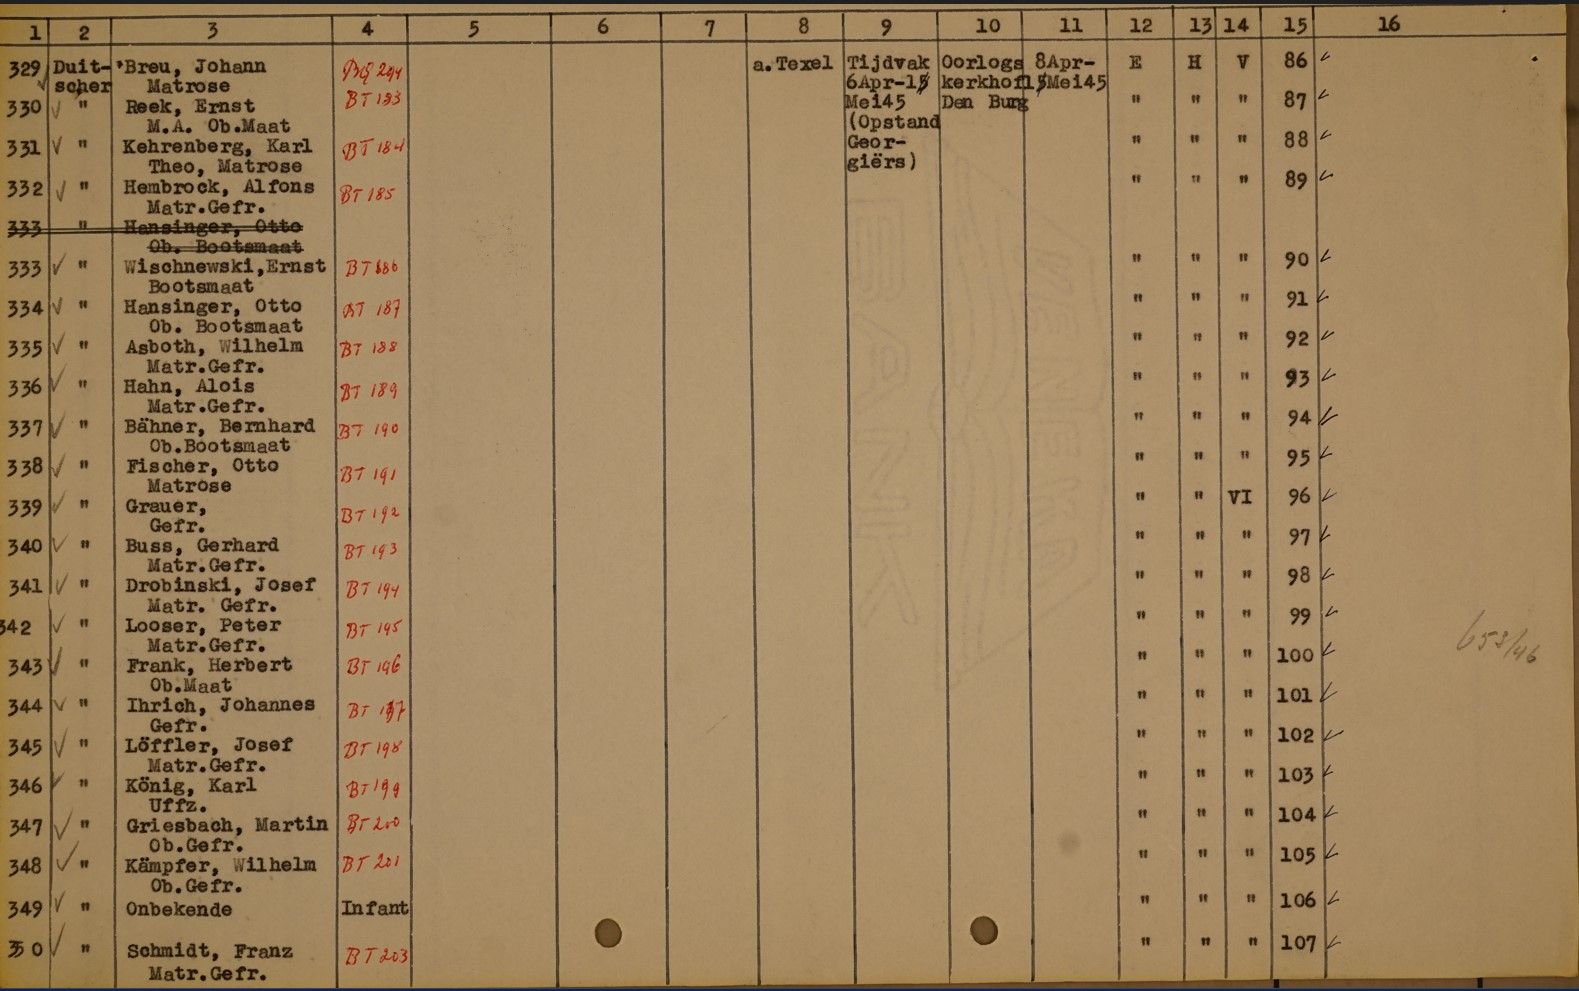 1 2 3 4 5 6 7 8 9 10 11 12 13 14 15 16
329 Duit- Breu, Johann a. Texel Tijdvak Oorlogs 8Apr- E H V 86
scher Matrose 6Apr-15 kerkhof 15Mei45
330 " Reek, Ernst BT 183 Mei45 Den Burg " " " 87
M.A. Ob.Maat (Opstand
331 " Kehrenberg, Karl BT 184 Geor- " " " 88
Theo, Matrose giërs)
332 " Hembrock, Alfons BT 185 " " " 89
Matr.Gefr.
333 " Hansinger, Otto
Ob. Bootsmaat
333 " Wischnewski,Ernst BT 186 " " " 90
Bootsmaat
334 " Hansinger, Otto BT 187 " " " 91
Ob. Bootsmaat
335 " Asboth, Wilhelm BT 188 " " " 92
Matr.Gefr.
336 " Hahn, Alois BT 189 " " " 93
Matr.Gefr.
337 " Bähner, Bernhard BT 190 " " " 94
Ob.Bootsmaat
338 " Fischer, Otto BT 191 " " " 95
Matrose
339 " Grauer, BT 192 " " VI 96
Gefr.
340 " Buss, Gerhard BT 193 " " " 97
Matr.Gefr.
341 " Drobinski, Josef BT 194 " " " 98
Matr. Gefr.
342 " Looser, Peter BT 195 " " " 99
Matr.Gefr.
343 " Frank, Herbert BT 196 " " " 100
Ob.Maat
344 " Ihrich, Johannes BT 197 " " " 101
Gefr.
345 " Löffler, Josef BT 198 " " " 102
Matr.Gefr.
346 " König, Karl BT 199 " " " 103
Uffz.
347 " Griesbach, Martin BT 200 " " " 104
Ob.Gefr.
348 " Kämpfer, Wilhelm BT 201 " " " 105
Ob.Gefr.
349 " Onbekende Infant " " " 106
350 " Schmidt, Franz BT 203 " " " 107
Matr.Gefr.